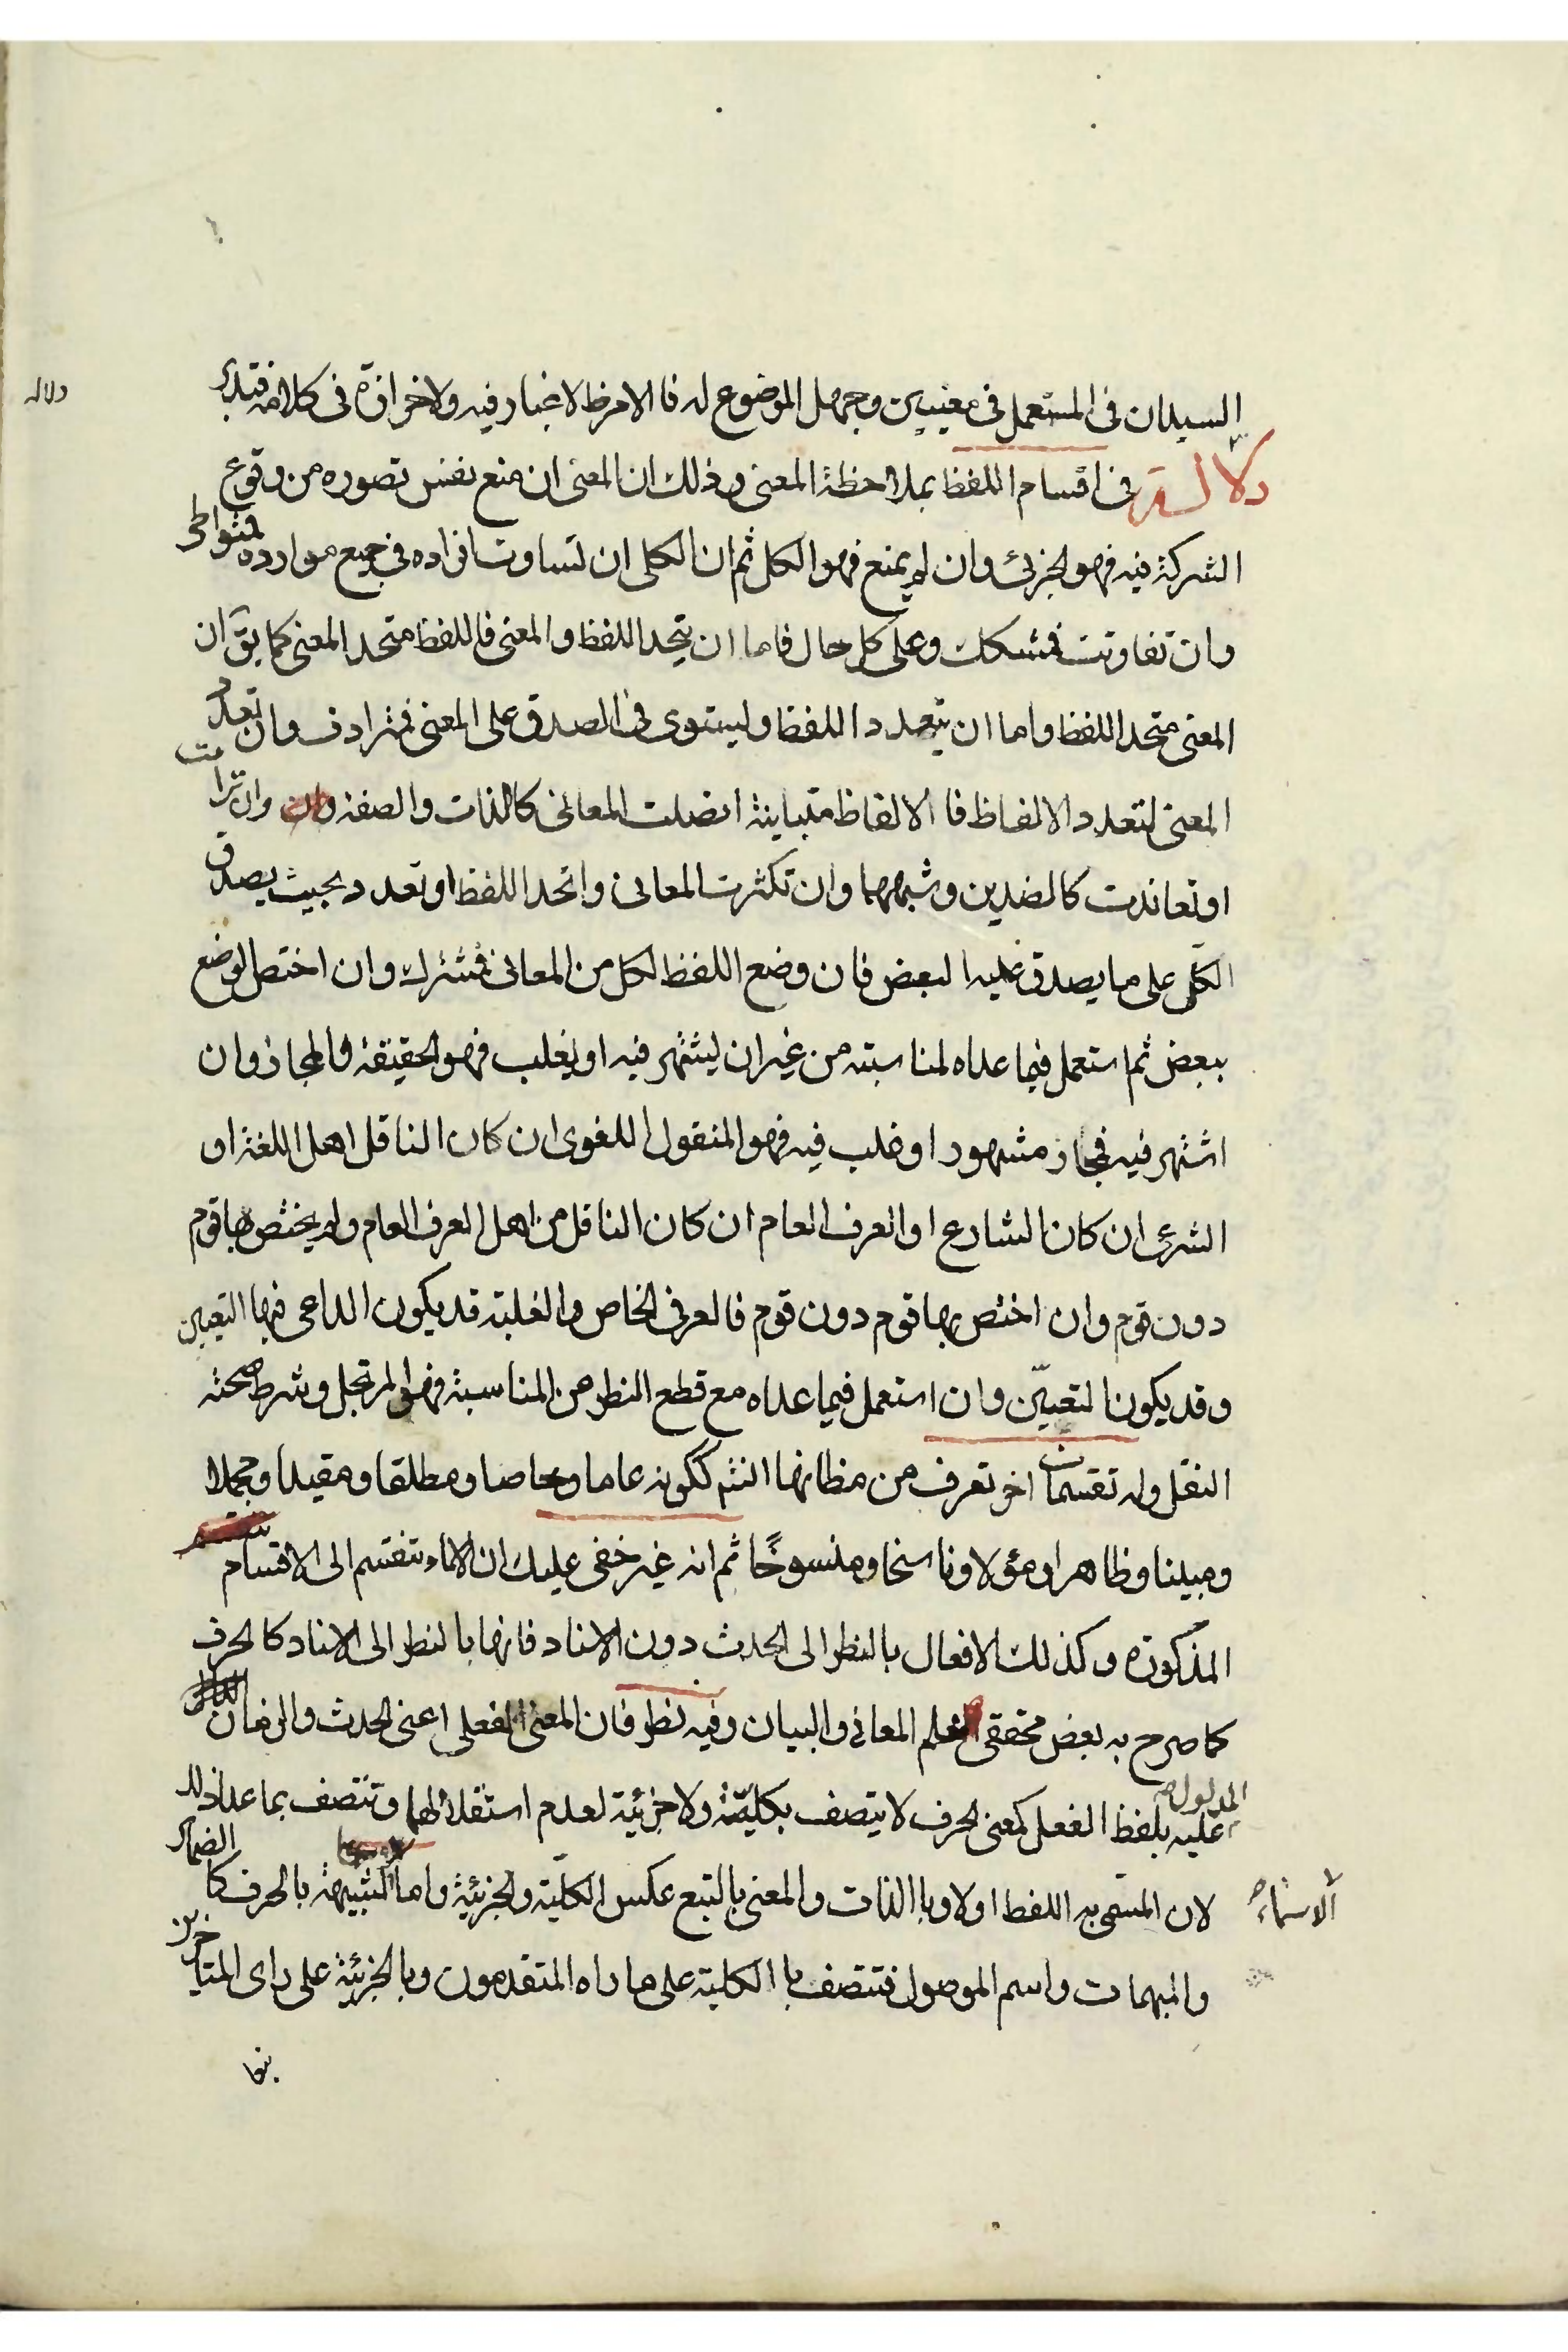 السيدان في المستعمل في معنيين وجهل الموضوع له فالامر ظ لا غبار فيه ولا خرافة في كلامه فتدبر
دلالة
دلالة في اقسام اللفظ بملاحظة المعنى وذلك ان المعنى ان منع نفس تصوره من وقوع
الشركة فيه فهو الجزئي وان لم يمنع فهو الكل ثم ان الكلي ان تساوت افراده في جميع موارده فمتواطي
وان تفاوتت فمشكك وعلى كل حال فاما ان يتحد اللفظ والمعنى فاللفظ متحد المعنى كما يق ان
المعنى متحد اللفظ واما ان يتعدد اللفظ ويستوى في الصدق على المعنى فمترادف وان تعدد
المعنى لتعدد الالفاظ فا الالفاظ متباينة اتصلت المعاني كالذات والصفة وان ترامت
او تعاندت كالضدين وشبههما وان تكثرت المعاني واتحد اللفظ او تعدد بحيث يصدق
الكل على ما يصدق عليه البعض فان وضع اللفظ لكل من المعاني فمشترك وان اختص الوضع
ببعض ثم استعمل فيما عداه لمناسبته من غير ان يشتهر فيه او يغلب فهو الحقيقة والمجاز وان
اشتهر فيه فمجاز مشهور او غلب فيه فهو المنقول اللغوى ان كان الناقل اهل اللغة او
الشرعي ان كان الشارع او العرف العام ان كان الناقل من اهل العرف العام ولم يختص بها قوم
دون قوم وان اختص بها قوم دون قوم فالعرفى الخاص والغلبة قد يكون الداعى فيها التعيين
وقد يكون التعيّن وان استعمل فيما عداه مع قطع النظر عن المناسبة فهو المرتجل وشرط صحته
النقل وله تقسمات اخر تعرف من مظانها انشم ككونه عاما وخاصا ومطلقا ومقيدا ومجملا
ومبينا وظاهرا ومؤلا وناسخا ومنسوخًا ثم انه غير خفى عليك ان الاسماء تنقسم الى الاقسام
المذكورة وكذلك الافعال بالنظر الى الحدث دون الاسناد فانها بالنظر الى الاسناد كالحرف
كما صرح به بعض محققى علم المعاني والبيان وفيه نظر فان المعنى الفعلي اعنى الحدث والزمان
المدلول عليه بلفظ الفعل كمعنى الحرف لا يتصف بكليّة ولا جزئية لعدم استقلالهما وتتصف بما عدا ذلك
لان المتصف به اللفظ اولا وبا الذات والمعنى بالتبع عكس الكلية والجزئية واما الشبيهة بالحرف كا الضمائر
الاسماء
والمبهمات واسم الموصول فتتصف با الكلية على ما راه المتقدمون وبالجزئية على راى المتاخرين